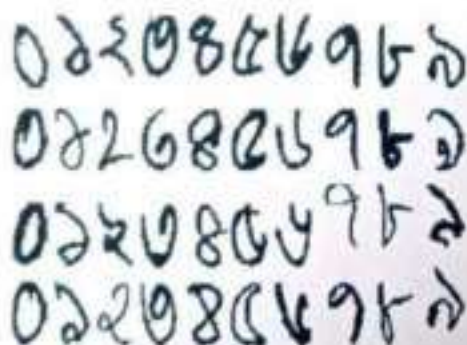 ০১২৩৪৫৬৭৮৯
০১২৩৪৫৬৭৮৯
০১২৩৪৫৬৭৮৯
০১২৩৪৫৬৭৮৯